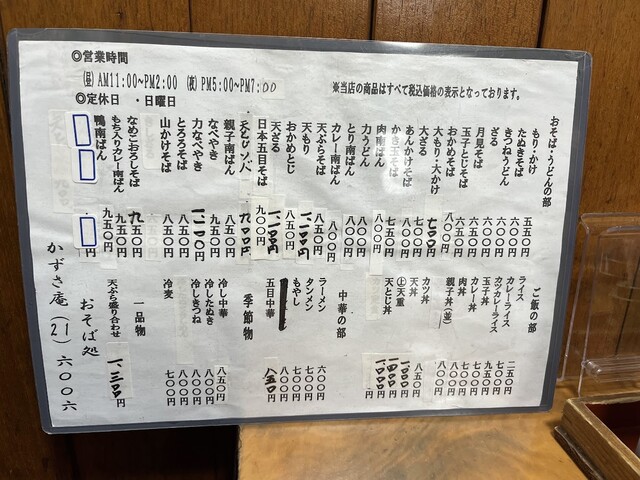 ◎営業時間
(昼) AM11:00~PM2:00 (夜) PM5:00~PM7:00
◎定休日 ・日曜日
※当店の商品はすべて税込価格の表示となっております。
おそば・うどんの部
もり・かけ 五五〇円
たぬきそば 六〇〇円
きつねうどん 六〇〇円
ざる 六〇〇円
月見そば 六五〇円
玉子とじそば 六五〇円
おかめそば 八〇〇円
大もり・大かけ 七〇〇円
大ざる 八〇〇円
あんかけそば 七五〇円
かき玉そば
肉南ばん 八〇〇円
力うどん 八〇〇円
とり南ばん 八〇〇円
カレー南ばん 八〇〇円
天ぷらそば 八五〇円
天もり 一、一〇〇円
おかめとじ 八五〇円
天ざる 一、一〇〇円
日本五目そば 九〇〇円
天とじそば 九〇〇円
親子南ばん 八五〇円
なべやき 八五〇円
力なべやき 一、一〇〇円
とろろそば 八五〇円
山かけそば 八五〇円
なめこおろしそば 九五〇円
もち入りカレー南ばん 九五〇円
鴨南ばん 九五〇円
円
ご飯の部
ライス 二五〇円
カレーライス 七〇〇円
カツカレーライス 九五〇円
玉子丼 七〇〇円
カレー丼 七〇〇円
肉丼 八〇〇円
親子丼(並) 八〇〇円
カツ丼 八五〇円
天丼 一、〇〇〇円
(上)天重 一、四〇〇円
天とじ丼 一、〇〇〇円
円
中華の部
ラーメン 六〇〇円
タンメン 七〇〇円
もやし 七〇〇円
八〇〇円
五目中華 八五〇円
季節物
冷し中華 八五〇円
冷したぬき 八〇〇円
冷しきつね 八〇〇円
冷麦 七〇〇円
一品物
天ぷら盛り合わせ 一、三〇〇円
おそば処
かずさ庵 (21) 六〇〇六